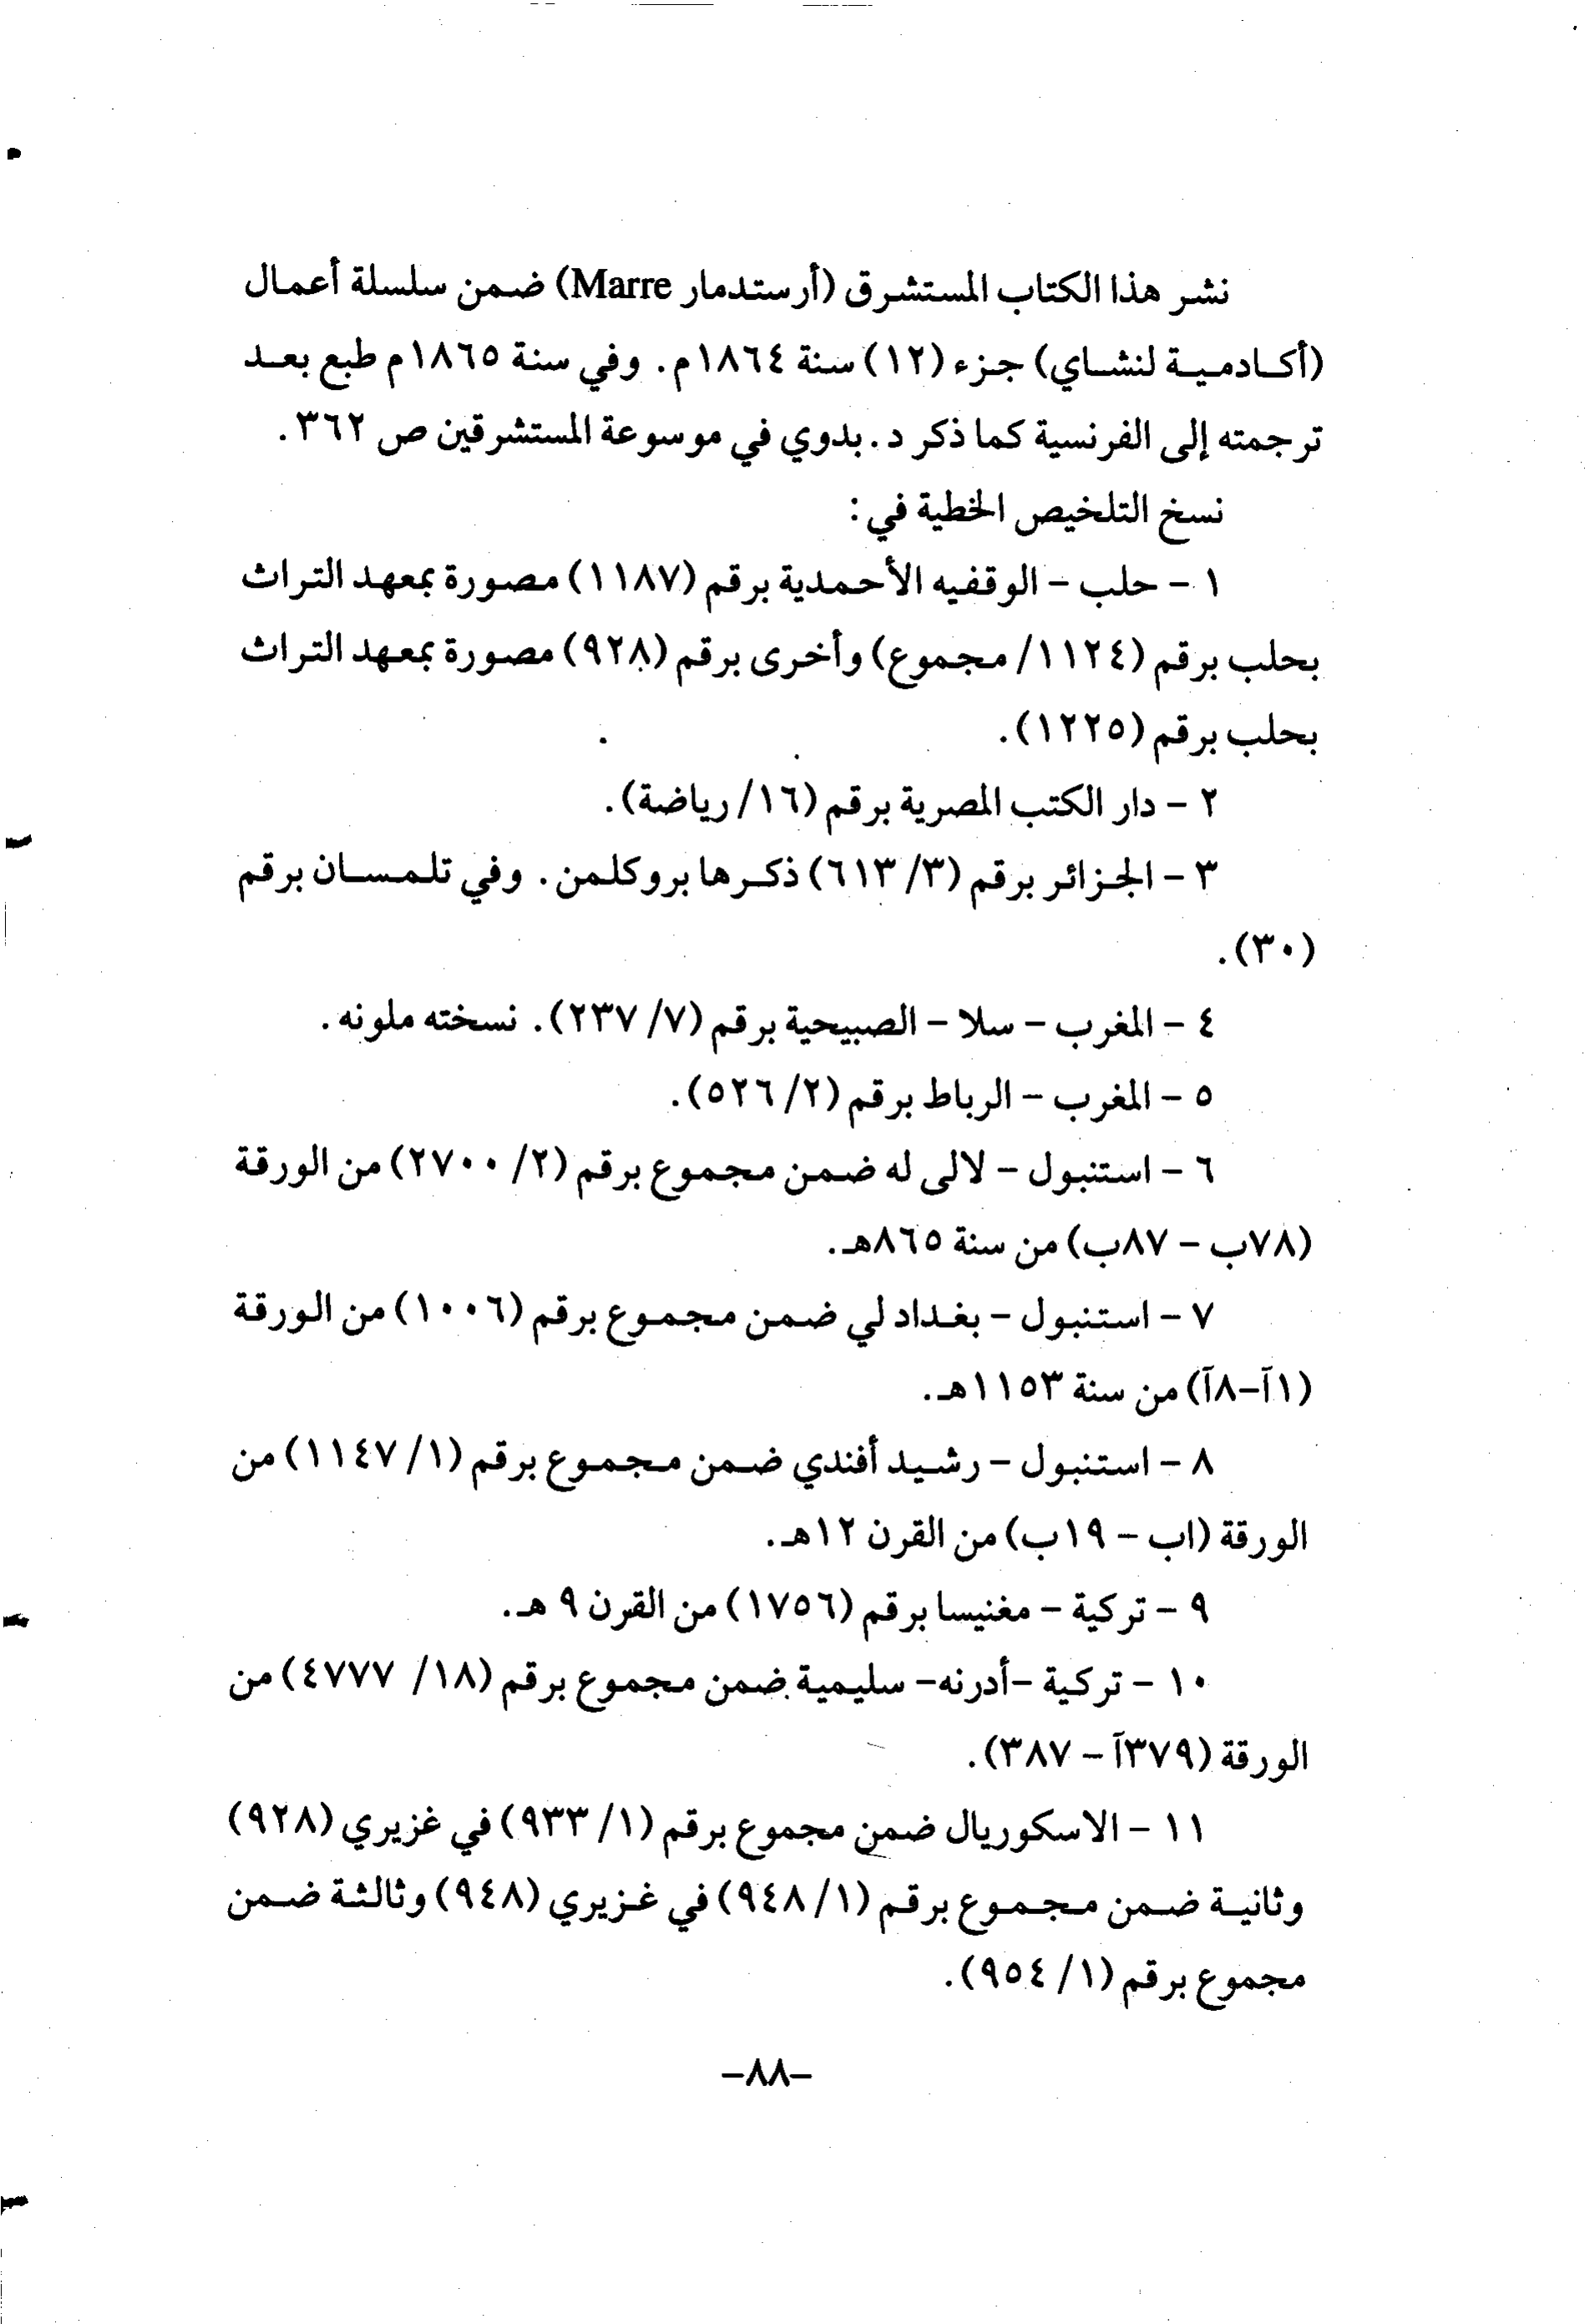 نشر هذا الكتاب المستشرق (أرستدمار Marre) ضمن سلسلة أعمال
(أكادمية لنشاي) جزء (١٢) سنة ١٨٦٤م. وفي سنة ١٨٦٥م طبع بعد
ترجمته إلى الفرنسية كما ذكر د. بدوي في موسوعة المستشرقين ص ٣٦٢.
نسخ التلخيص الخطية في:
١ - حلب - الوقفيه الأحمدية برقم (١١٨٧) مصورة بمعهد التراث
بحلب برقم (١١٢٤/ مجموع) وأخرى برقم (٩٢٨) مصورة بمعهد التراث
بحلب برقم (١٢٢٥).
٢ - دار الكتب المصرية برقم (١٦/ رياضة).
٣ - الجزائر برقم (٣/ ٦١٣) ذكرها بروكلمن. وفي تلمسان برقم
(٣٠).
٤ - المغرب - سلا - الصبيحية برقم (٧/ ٢٣٧). نسخته ملونه.
٥ - المغرب - الرباط برقم (٢/ ٥٢٦).
٦ - استنبول - لالى له ضمن مجموع برقم (٢/ ٢٧٠٠) من الورقة
(٧٨ب - ٨٧ب) من سنة ٨٦٥هـ.
٧ - استنبول - بغداد لي ضمن مجموع برقم (١٠٠٦) من الورقة
(١آ-٨آ) من سنة ١١٥٣هـ.
٨ - استنبول - رشيد أفندي ضمن مجموع برقم (١/ ١١٤٧) من
الورقة (اب - ١٩ب) من القرن ١٢هـ.
٩ - تركية - مغنيسا برقم (١٧٥٦) من القرن ٩ هـ.
١٠ - تركية -أدرنه- سليمية ضمن مجموع برقم (١٨/ ٤٧٧٧) من
الورقة (٣٧٩آ - ٣٨٧).
١١ - الاسكوريال ضمن مجموع برقم (١/ ٩٣٣) في غزيري (٩٢٨)
وثانية ضمن مجموع برقم (١/ ٩٤٨) في غزيري (٩٤٨) وثالثة ضمن
مجموع برقم (١/ ٩٥٤).
-٨٨-